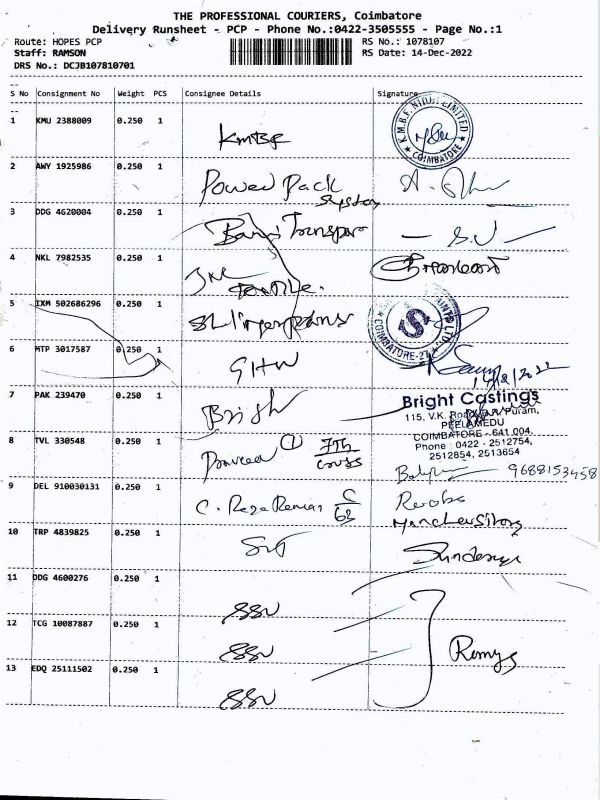 THE PROFESSIONAL COURIERS, Coimbatore
Delivery Runsheet - PCP - Phone No.:0422-3505555 - Page No.:1
Route: HOPES PCP
RS No.: 1078107
Staff: RAMSON
RS Date: 14-Dec-2022
DRS No.: DCJB107810701
S No Consignment No Weight PCS Consignee Details Signature
1 KMU 2388009 0.250 1 KMBF
K.M.B.F. NIDHI LIMITED
★ COIMBATORE ★
2 AWY 1925986 0.250 1 Power Pack System
3 DDG 4620004 0.250 1 Transport S.V
4 NKL 7982535 0.250 1
5 IXM 502686296 0.250 1
COIMBATORE-27
6 MTP 3017587 0.250 1 GHW
7 PAK 239470 0.250 1 Bright
Bright Castings
115, V.K. Road, Puram,
PEELAMEDU
COIMBATORE - 641 004.
Phone : 0422 - 2512754,
2512854, 2513654
8 TVL 330548 0.250 1 Praveen 1 7th cross
9688153458
9 DEL 910030131 0.250 1 C.
10 TRP 4839825 0.250 1
11 DDG 4600276 0.250 1 SSV
12 TCG 10087887 0.250 1 SSV
13 EDQ 25111502 0.250 1 SSV